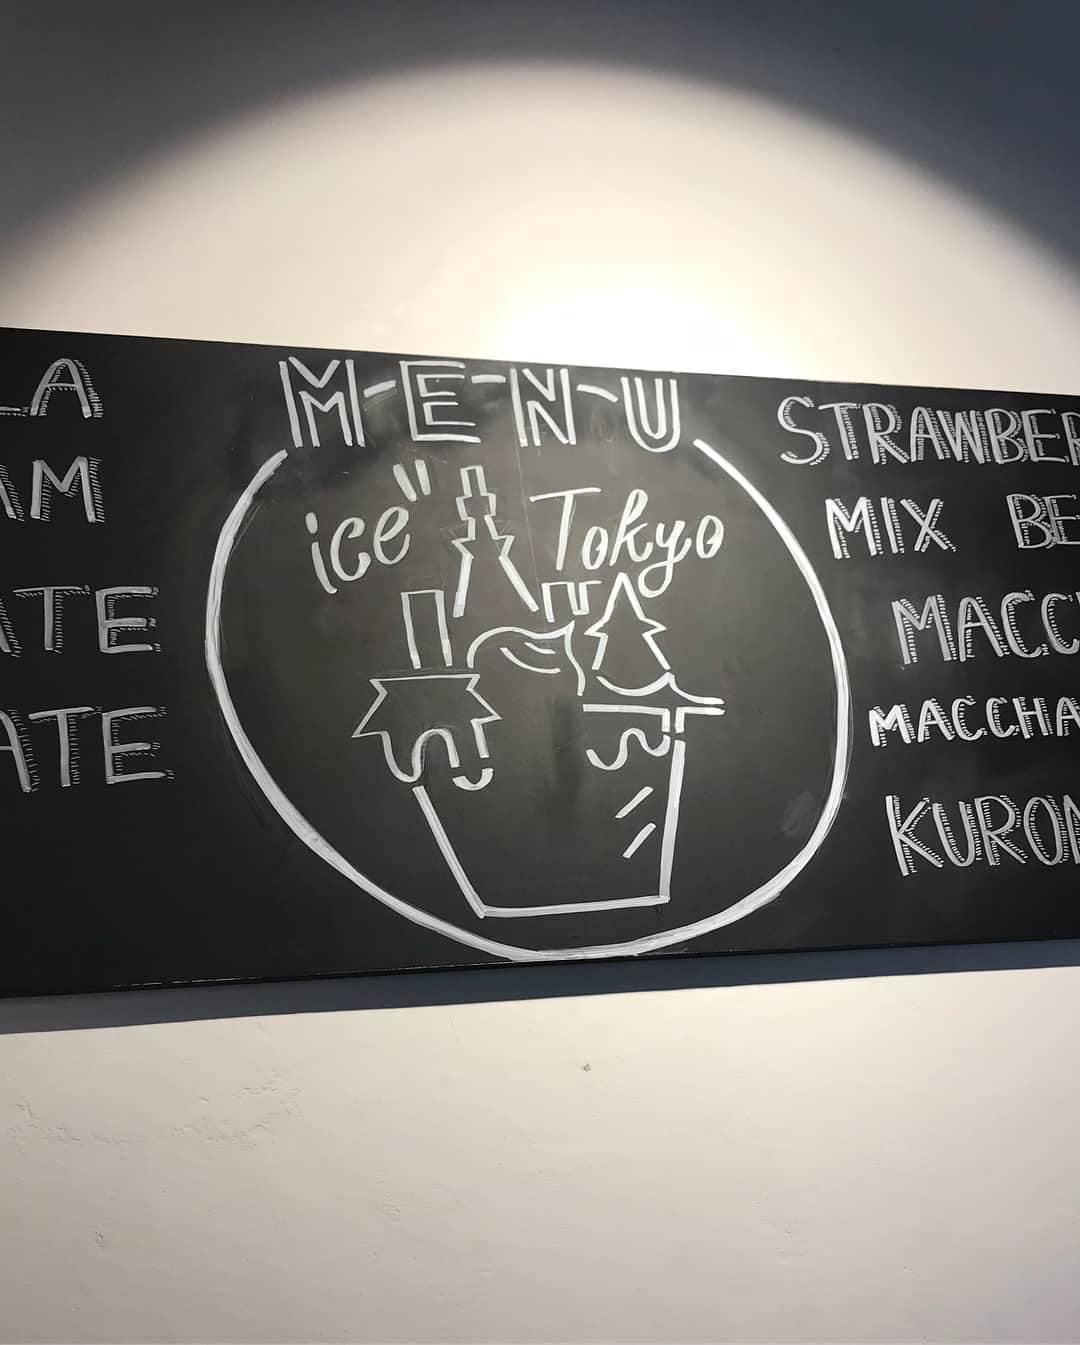 M-E-N-U
ice" Tokyo
LA
AM
ATE
ATE
STRAWBER
MIX BE
MACC
MACCHA
KURO